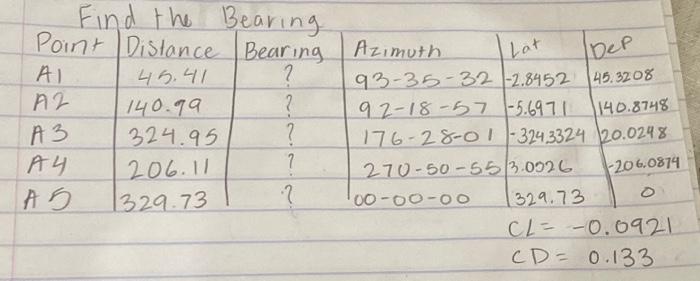 Find the Bearing
Point Distance Bearing Azimuth Lat Dep
A1 45.41 ? 93-35-32 -2.8452 45.3208
A2 140.99 ? 92-18-57 -5.6971 140.8748
A3 324.95 ? 176-28-01 -324.3324 20.0248
A4 206.11 ? 270-50-55 3.0526 -206.0874
A5 329.73 ? 00-00-00 329.73 0
CL = -0.0921
CD = 0.133